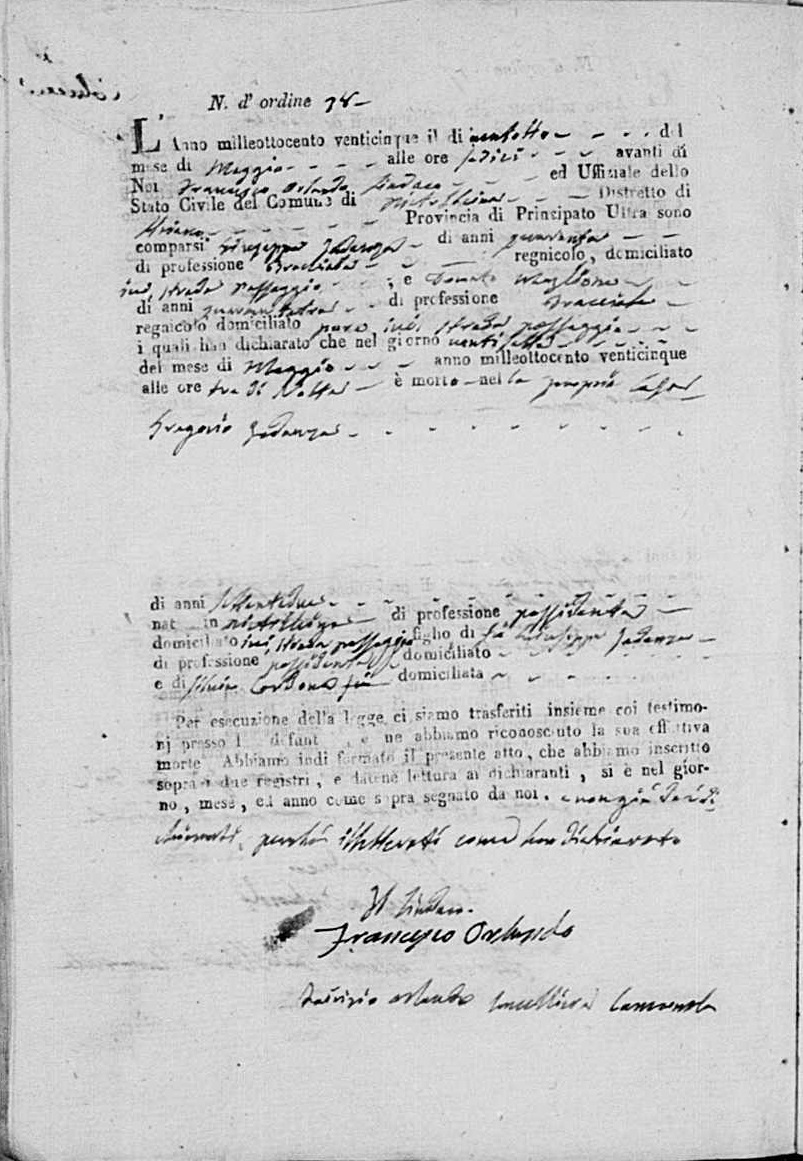 N. d' ordine
L'Anno milleottocento venticinque il dì ventotto del
mese di Maggio alle ore sedici avanti di
Noi Francesco Orlando Sindaco ed Uffiziale dello
Stato Civile del Comune di Distretto di
Ariano Provincia di Principato Ultra sono
comparsi Giuseppe Jadanza di anni quaranta
di professione Bracciale regnicolo, domiciliato
ivi strada passaggio ; e Donato
di anni di professione Bracciale
regnicolo domiciliato pure ivi strada passaggio
i quali han dichiarato che nel giorno venti sette
del mese di Maggio anno milleottocento venticinque
alle ore tre di Notte è morto nella propria Casa
Gregorio Jadanza
di anni settantadue
nat in di professione possidente
domiciliato ivi strada passaggio figlio di fu Giuseppe Jadanza
di professione possidente domiciliato
e di Cardone fu domiciliata
Per esecuzione della legge ci siamo trasferiti insieme coi testimo-
nj presso l defunt , e ne abbiamo riconosciuto la sua effettiva
morte Abbiamo indi formato il presente atto, che abbiamo inscritto
sopra i due registri, e datene lettura ai dichiaranti, si è nel gior-
no, mese, ed anno come sopra segnato da noi. e non già dai di
chiaranti, perché illetterati come han dichiarato
Il Sindaco
Francesco Orlando
Orlando Cancelliere